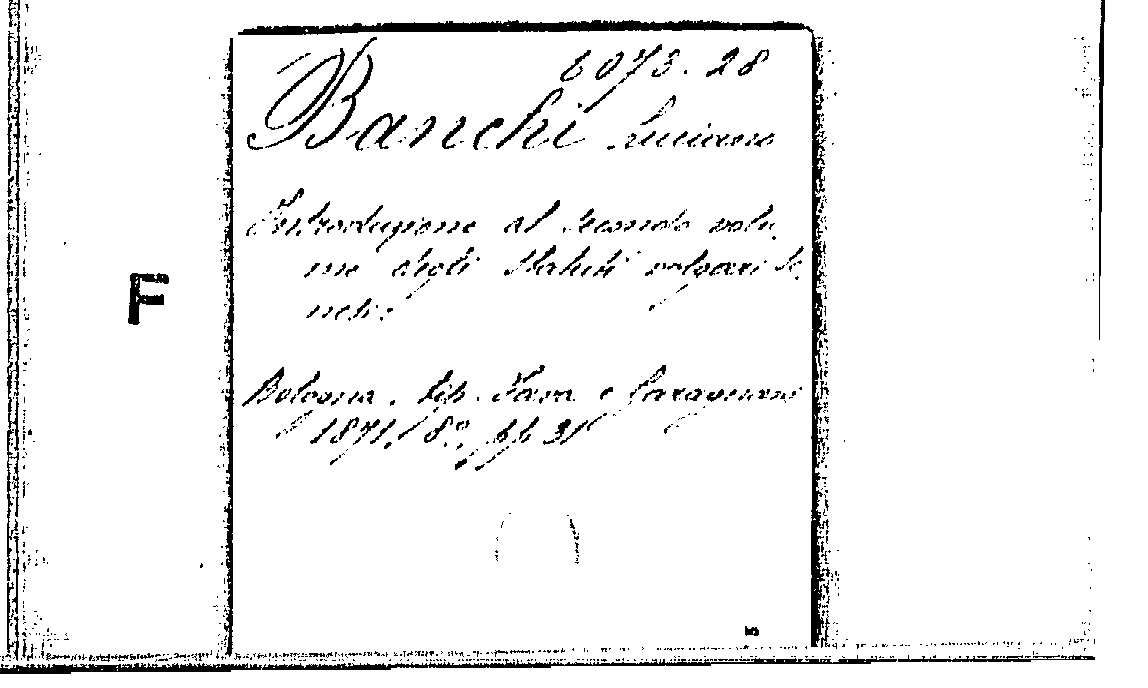 6073.28
Banchi Luciano
Introduzione al secondo volu
me degli Statuti volgari Se
nesi.
Bologna, tip. Fava e Garagnani
1871, 8º, pp 31
F